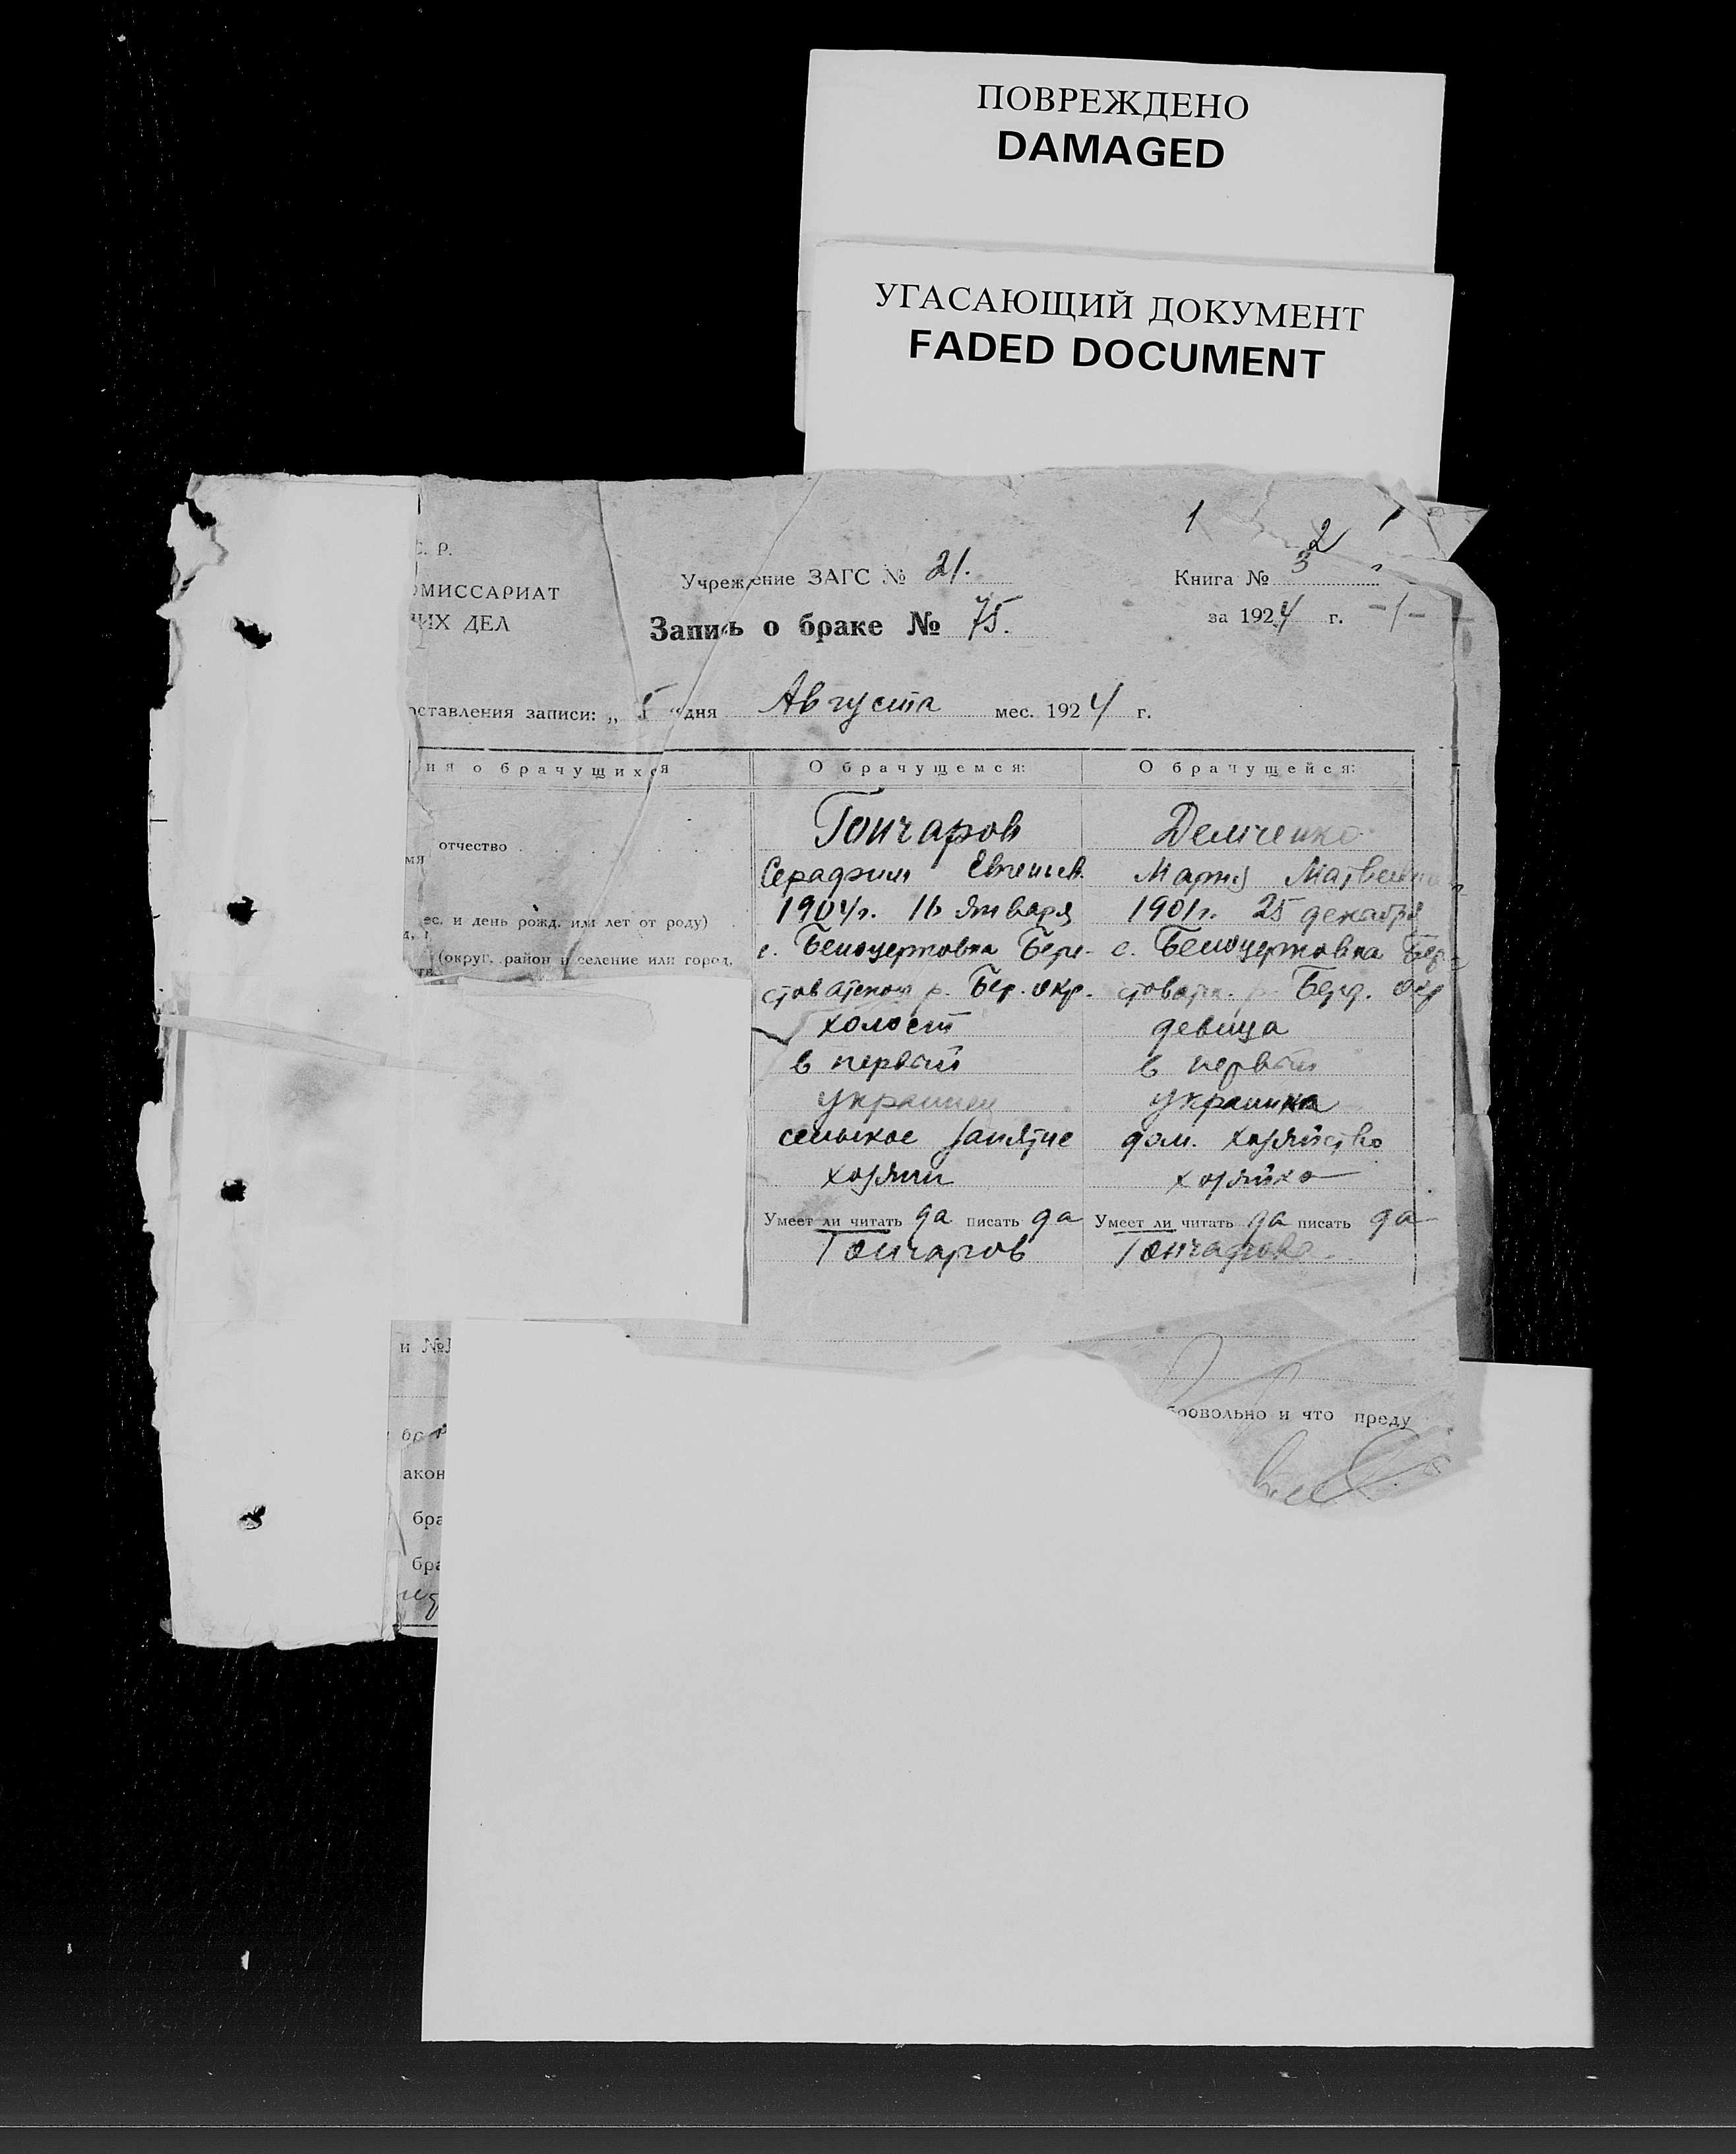 ПОВРЕЖДЕНО
DAMAGED
УГАСАЮЩИЙ ДОКУМЕНТ
FADED DOCUMENT
1 2
С. Р.
ОМИССАРИАТ
ИХ ДЕЛ
Учреждение ЗАГС № 21.
Книга № 3
Запись о браке № 75.
за 1924 г. -1-
оставления записи: „ “ дня Августа мес. 1924 г.
ия о брачущихся
О брачущемся:
О брачущейся:
Гончаров
отчество
мя
Серафим
Мария Матвеевна
ес. и день рожд. или лет от роду)
1904г. 16 января
1901г. 25 декабря
(округ, район и селение или город,
с. Белоцерковка Бере-
с. Белоцерковка Бер
стоватского р. Бер. окр.
стоватск. р. Берд. окр
холост
девица
в первый
в первый
украинец
украинка
сельское занятие
дом. хозяйство
хозяин
хозяйка
Умеет ли читать да писать да
Умеет ли читать да писать да
Гончаров
Гончарова.
и №
бровольно и что преду
бр
акон
бра
бра